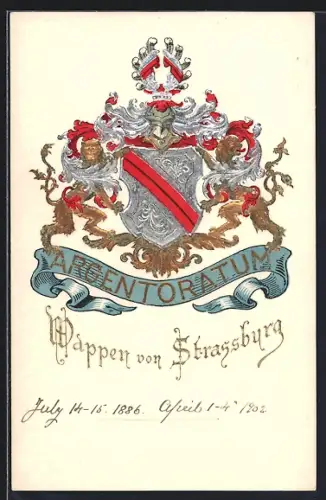 ARGENTORATUM
Wappen von Strassburg
July 14-15. 1886. April 1-4" 1902